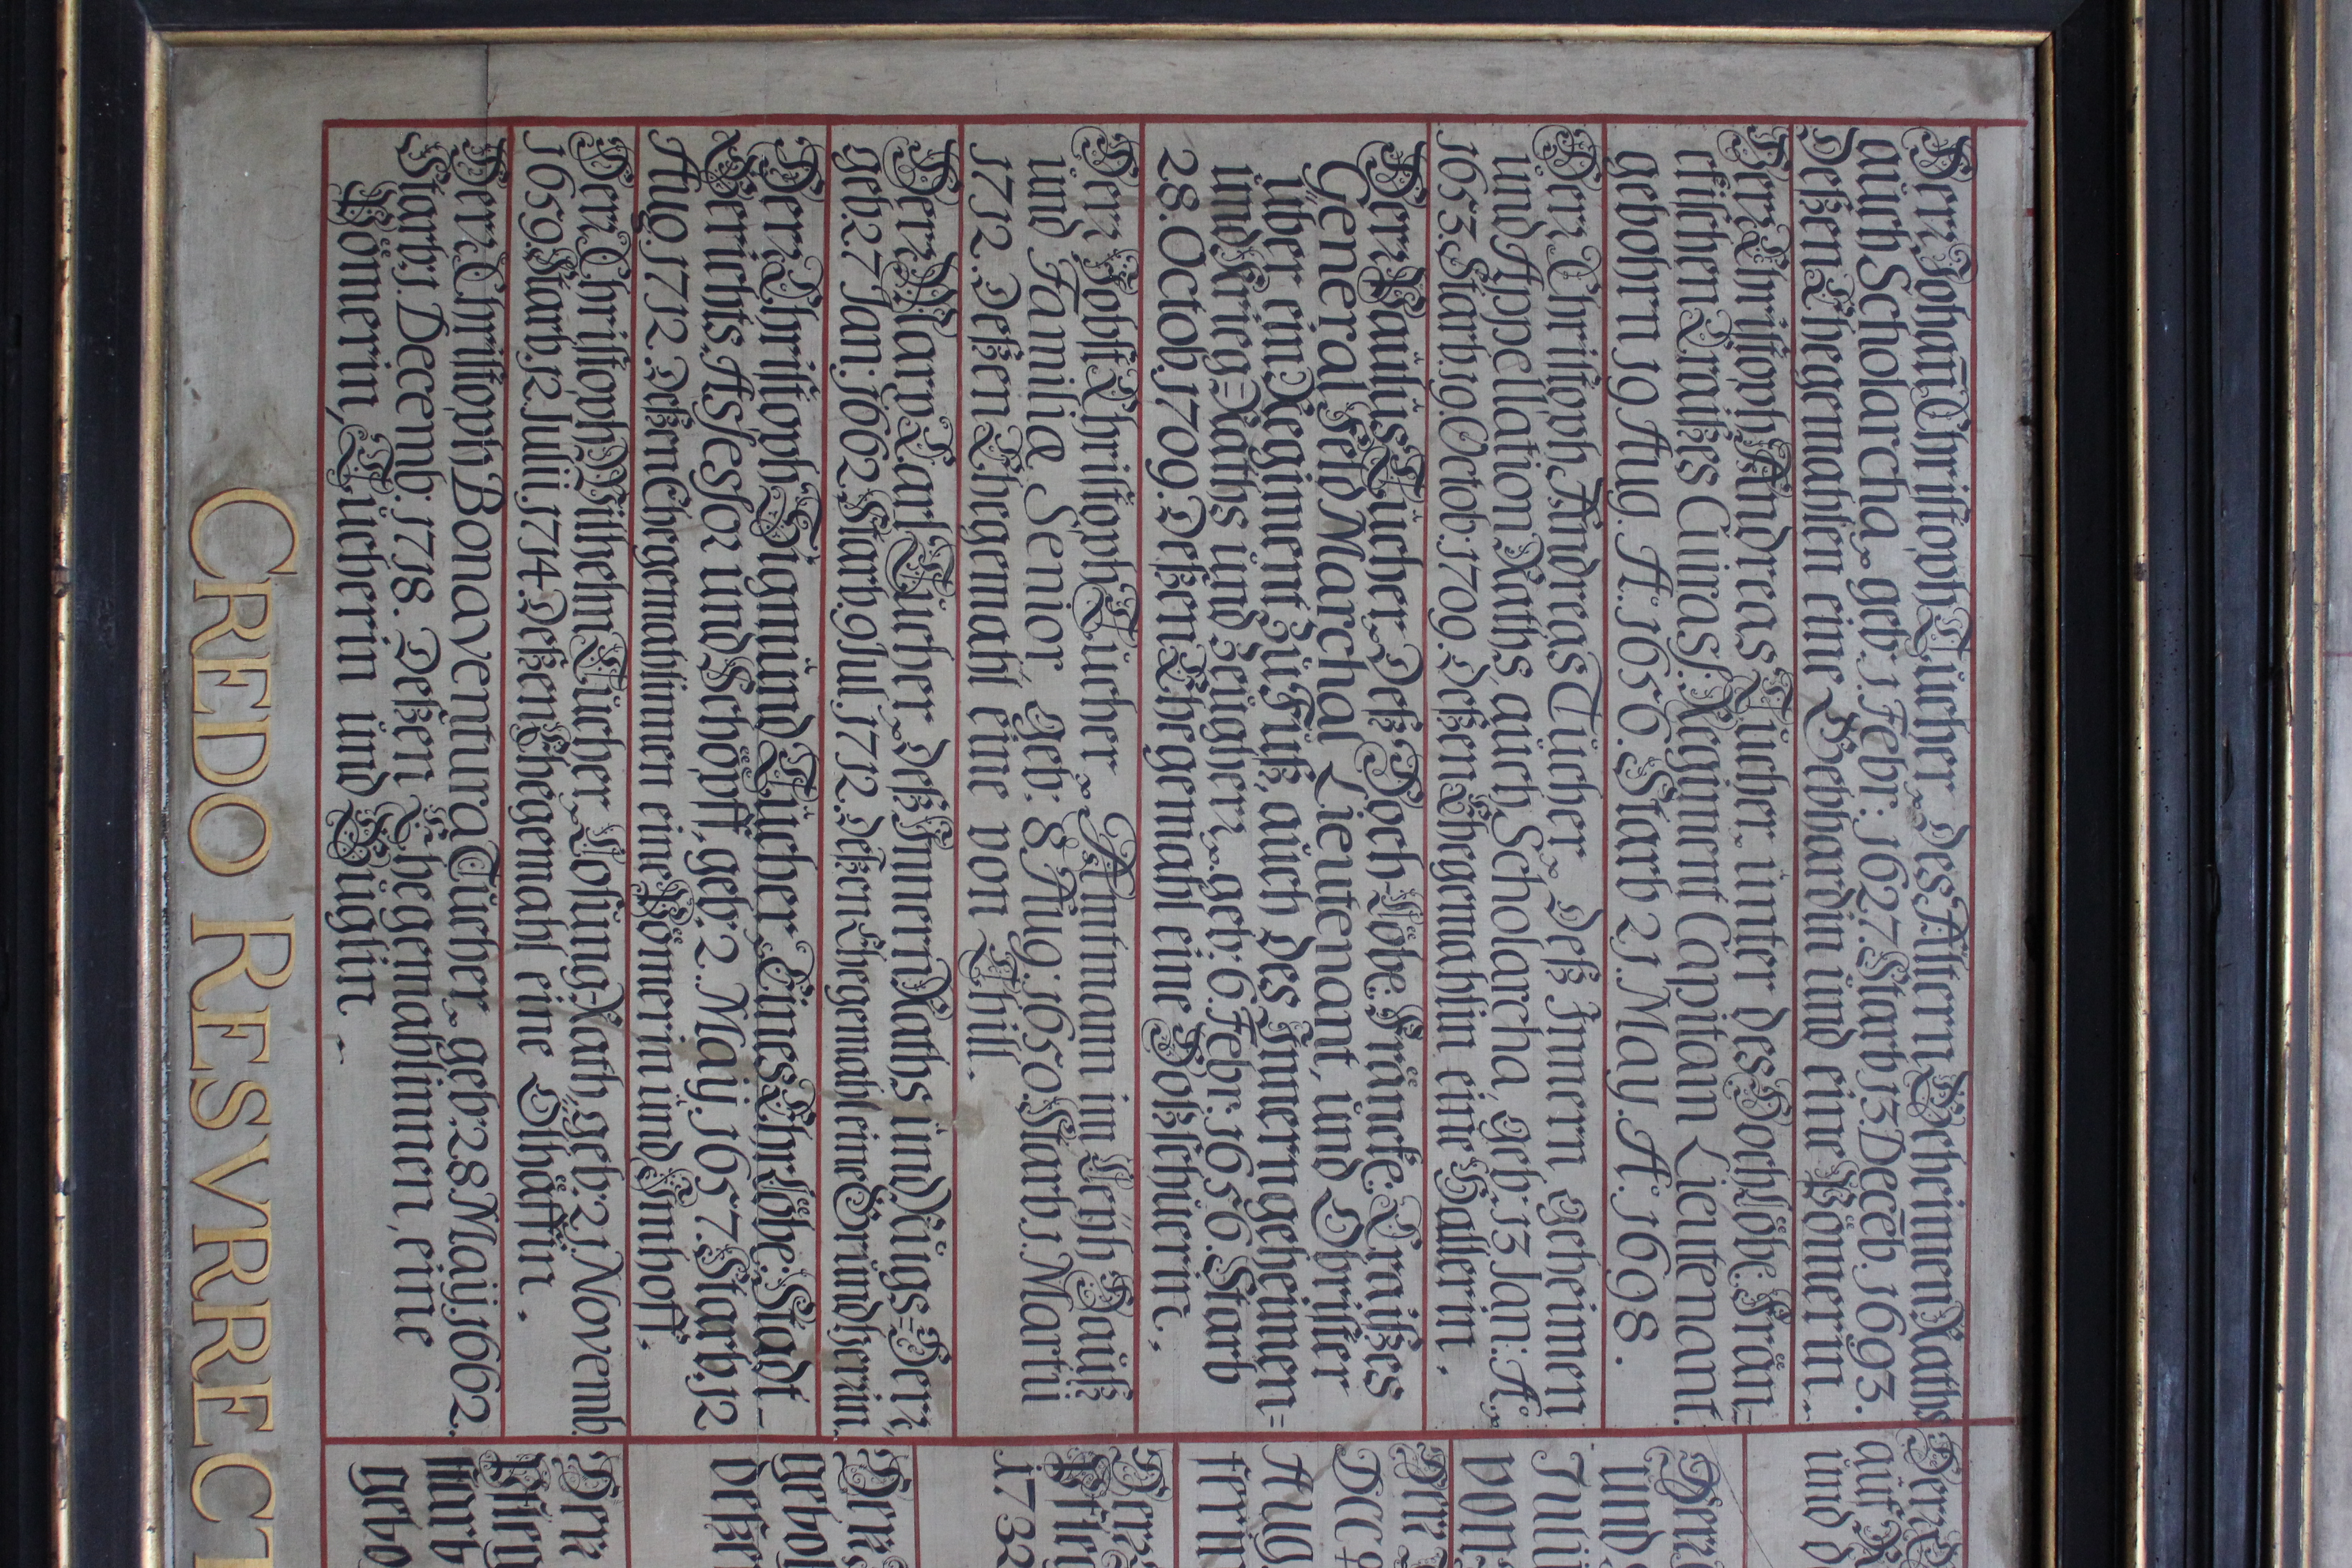 Herr Johañ Christoph Tücher, des Ältern Geheimen Raths
auch Scholarcha, geb: 1. Febr: 1627. Starb 13. Decēb. 1693.
Deßen Ehegemahlen eine Gebhardin und eine Pömerin.
Herr Christoph Andreas Tücher, unter des Hochlöbl: Frän=
ckischen Craißes Cuirass: Regiment Capitain Lieutenant.
gebohrn 19 Aug. A: 1656. Starb 21. May. A: 1698.
Herr Christoph Andreas Tücher, Deß Innern geheimen
und Appellation Raths, auch Scholarcha, geb: 13 Jan: A:
1653. Starb. 19. Octob. 1709. Deßen Ehegemahlin eine Hallerin.
Herr Paulus Tücher, Deß Hoch Löbl: Fränk: Craißes
General Feld Marchal Lieutenant, und Obrister
über ein Regiment zü Füß, auch des Innern geheimen=
und Krieg=Raths und Zeügherr, geb: 6. Febr: 1656. Starb
28. Octob. 1709. Deßen Ehegemahl eine Holtzschuerin.
Herr Jobst Christoph Tücher, Amtmann im Hauß
und Familiæ Senior, geb: 8 Aug: 1650. Starb 1. Martii
1712. Deßen Ehegemahl eine von Thill.
Herr Marx Carl Tücher, Deß Innern Raths und Rügs=Herr,
geb: 27 Jan: 1662 Starb. 9 Jul. 1712. Deßen Ehegemahl eine Gründherrin.
Herr Christoph Sigmund Tücher, Eines Ehrlöbl: Stadt-
Gerichts Assessor und Schöpff, geb: 2. Maij. 1657. Starb 12
Aug. 1712. Deßen Ehegemahlinnen eine Pömerin und Imhoff.
Herr Christoph Wilhelm Tücher, Losung=Rath, geb: 21 Novemb.
1659. Starb. 12 Julii. 1714. Deßen Ehegemahl eine Ölhäffin.
Herr Christoph Bonaventura Tücher, geb: 28 Maij. 1662.
Starb. 1 Decemb. 1718. Deßen Ehegemahlinnen, eine
Pömerin, Tücherin und Büglin.
CREDO RESVRRECT
Herr
auf
und d
Herr
und
Julii
von
Herr
DCC
Aug
fern
Herr
1732
Herr
gebo
deße
Herr
starb
gebo